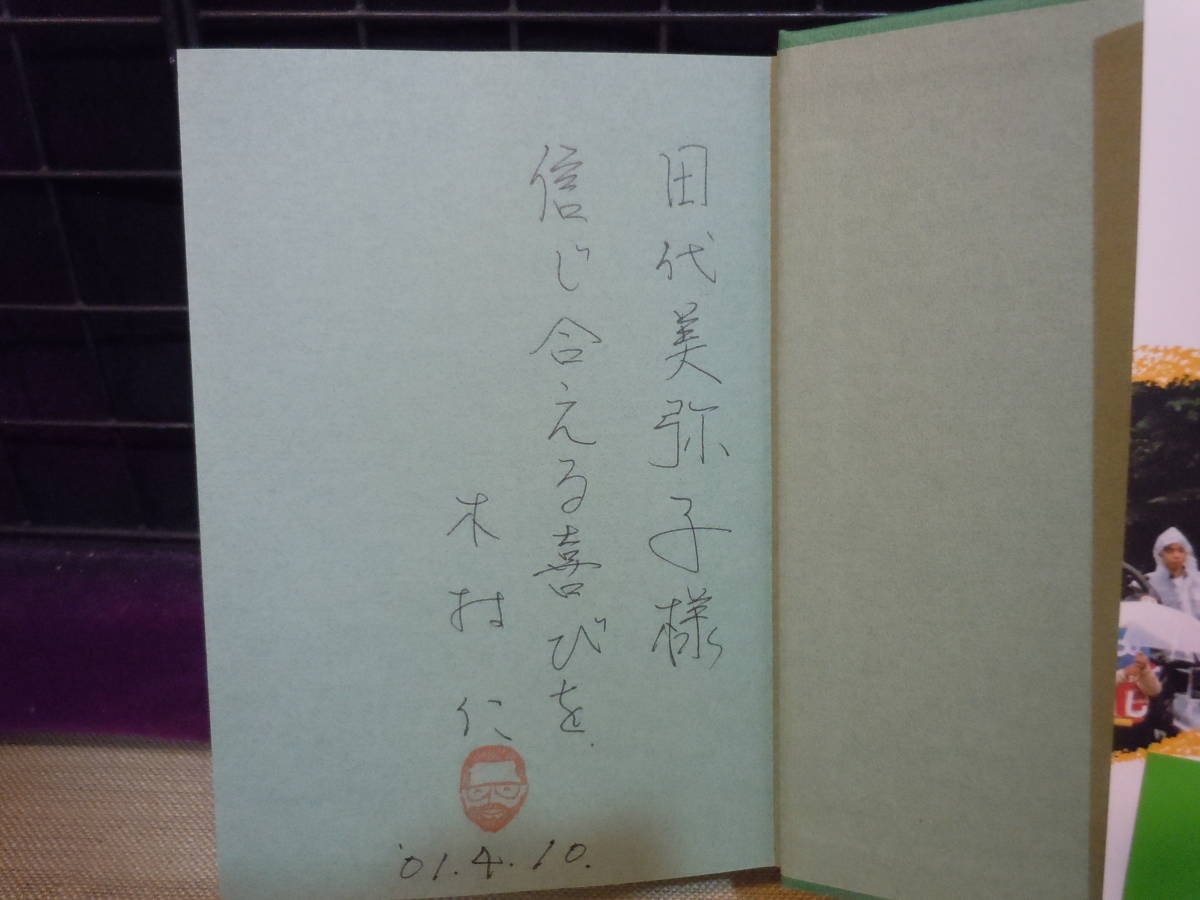 田代美弥子様
信じ合える喜びを.
木村仁
'01.4.10.
し